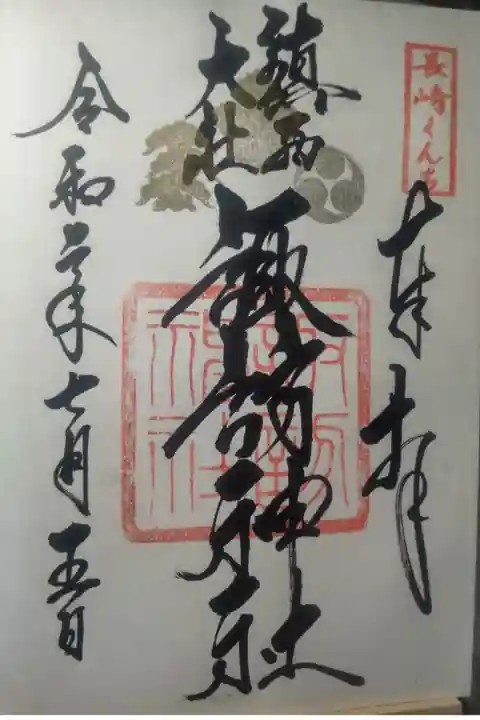 長崎くんち
奉拝
鎮西
大社
諏訪神社
令和二年七月五日